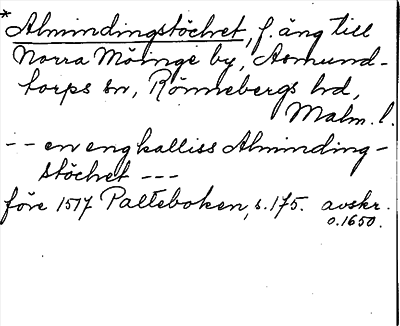 * Almindingstöchet, f. äng till
Norra Möinge by, Asmund-
torps sn, Rönnebergs hd,
Malm. l.
-- en eng kalliss Alminding-
stöchet ---
före 1517 Palteboken, s. 175. avskr.
o. 1650.